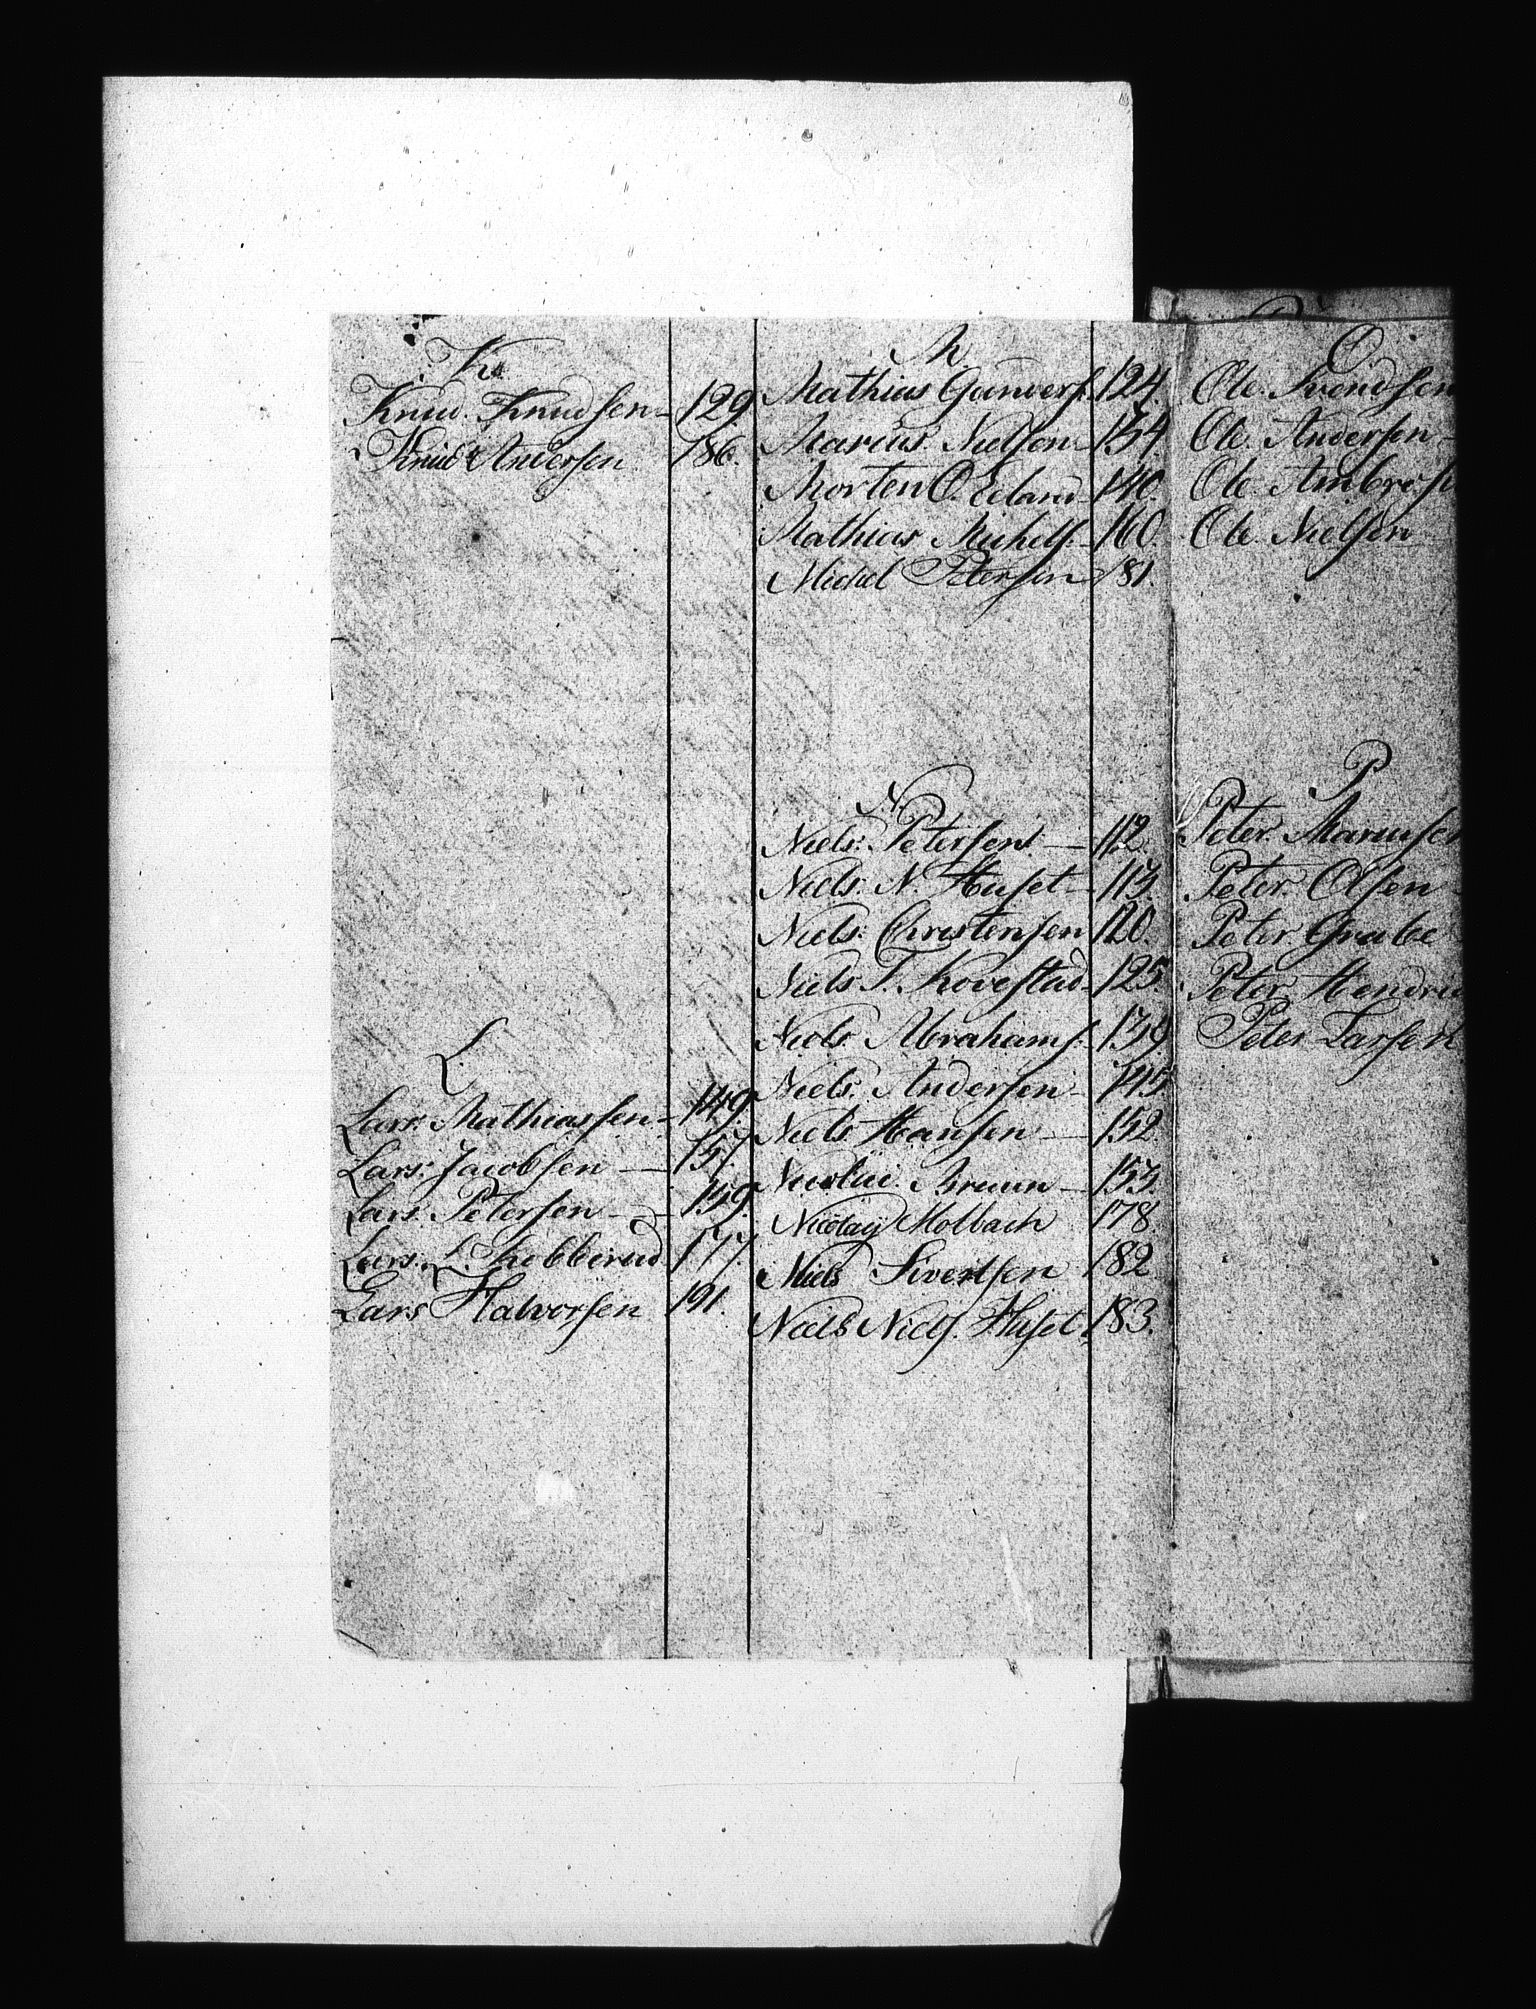 K.
Knud. Knudsen 129.
Knud Andersen 186.
L.
Lars. Mathiassen 149.
Lars. Jacobsen 157.
Lars. Petersen 159.
Lars. L. 177.
Lars Halvorsen 191.
M
Mathias 124.
Marius. Nielsen 134.
Morten O. Eeland 140.
Mathias Michels. 160.
Michel Petersen 181.
N.
Niels. Petersen 112.
Niels. N. Huset 113.
Niels. Christensen 120.
Niels. T. 125.
Niels. Abrahams. 139.
Niels. Andersen 145.
Niels. Hansen 152.
Nicolai. Bruun 153.
Nicolay Molbach 178
Niels Sivertsen 182
Niels Niels. Huset 183.
O.
Ole. Svendsen
Ole. Andersen
Ole. Ambros
Ole. Nielsen
P
Peter.
Peter. Olsen
Peter. Grabe
Peter. Hendri
Peter Larsen